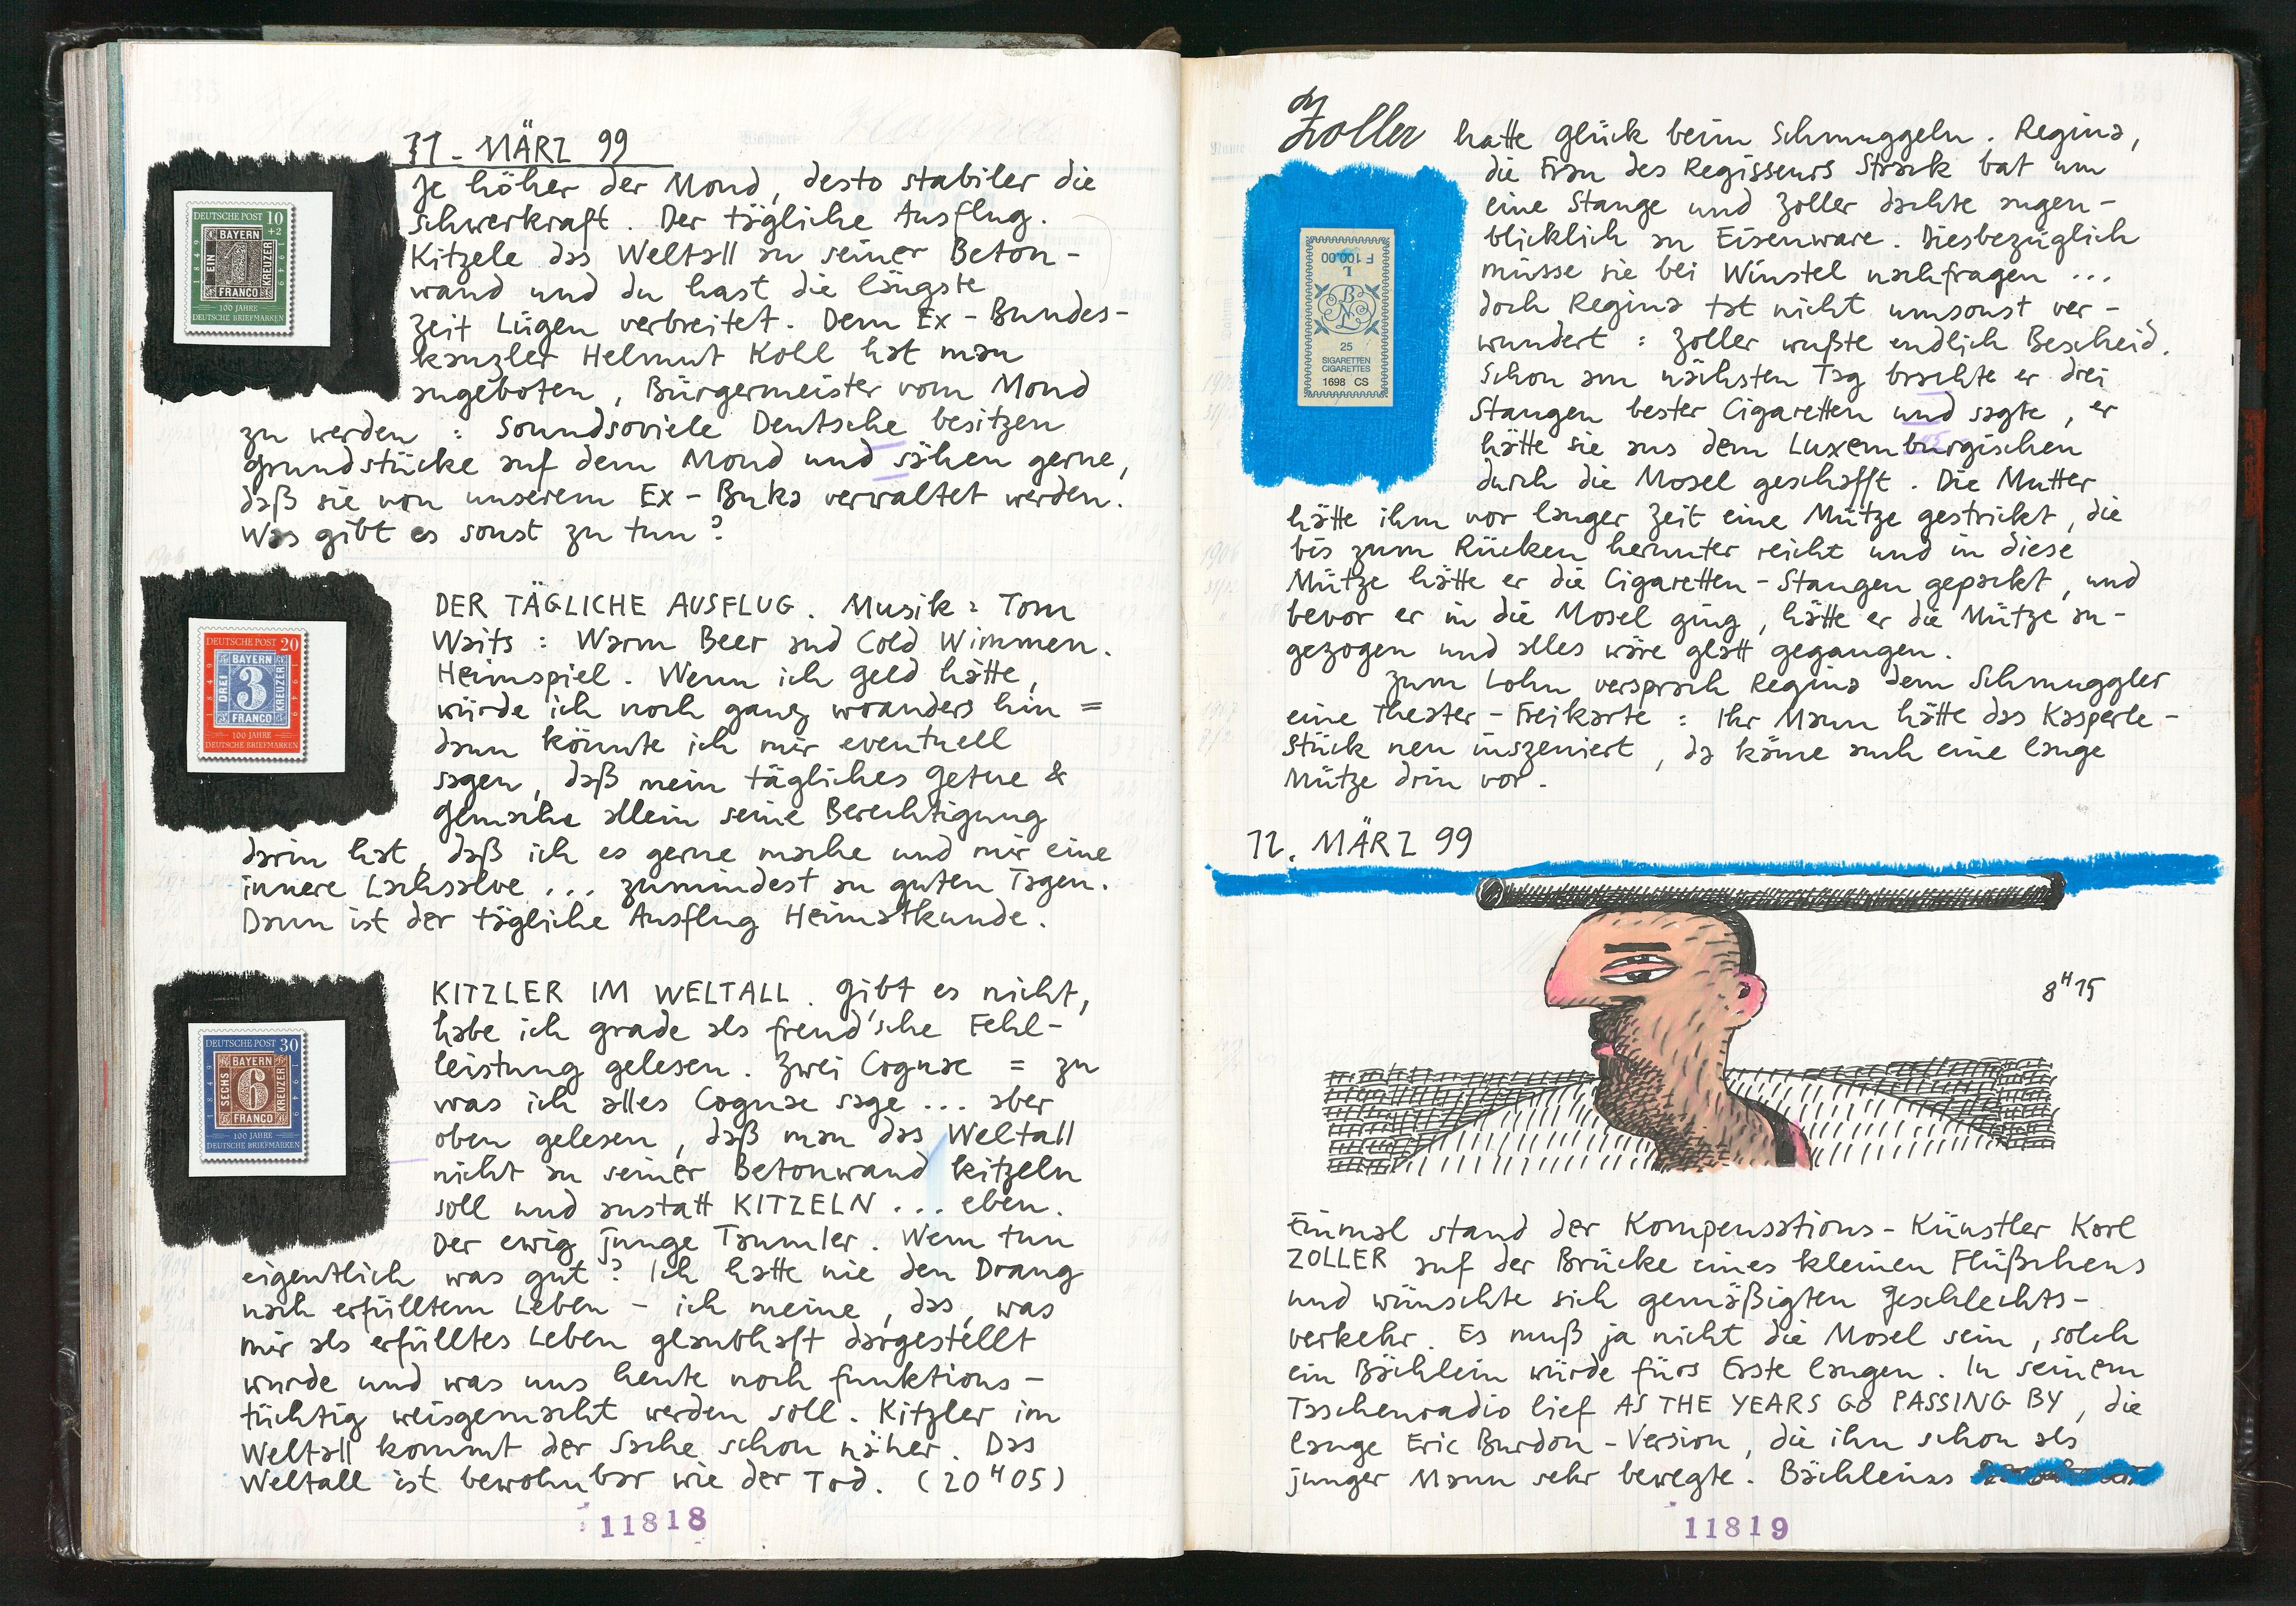 11. MÄRZ 99
Je höher der Mond, desto stabiler die
Schwerkraft. Der tägliche Ausflug.
Kitzele das Weltall an seiner Beton-
wand und du hast die längste
Zeit Lügen verbreitet. Dem Ex-Bundes-
kanzler Helmut Kohl hat man
angeboten, Bürgermeister vom Mond
zu werden: Soundsoviele Deutsche besitzen
Grundstücke auf dem Mond und sähen gerne,
daß sie von unserem Ex-Buka verwaltet werden.
Was gibt es sonst zu tun?
DEUTSCHE POST 10
+2
BAYERN
EIN
1
KREUZER
FRANCO
1849
1949
100 JAHRE
DEUTSCHE BRIEFMARKEN
DER TÄGLICHE AUSFLUG. Musik: Tom
Waits: Warm Beer and Cold Wimmen.
Heimspiel. Wenn ich Geld hätte,
würde ich noch ganz woanders hin =
dann könnte ich mir eventuell
sagen, daß mein tägliches Getue &
Gemache allein seine Berechtigung
darin hat, daß ich es gerne mache und mir eine
innere Lachsalve ... zumindest an guten Tagen.
Dann ist der tägliche Ausflug Heimatkunde.
DEUTSCHE POST 20
BAYERN
DREI
3
KREUZER
FRANCO
1849
1949
100 JAHRE
DEUTSCHE BRIEFMARKEN
KITZLER IM WELTALL. Gibt es nicht,
habe ich grade als freud'sche Fehl-
leistung gelesen. Zwei Cognac = zu
was ich alles Cognac sage ... aber
oben gelesen, daß man das Weltall
nicht an seiner Betonwand kitzeln
soll und anstatt KITZELN ... eben.
Der ewig junge Taumler. Wem tun
eigentlich was gut? Ich hatte nie den Drang
nach erfülltem Leben - ich meine, das, was
mir als erfülltes Leben glaubhaft dargestellt
wurde und was uns heute noch funktions-
tüchtig weisgemacht werden soll. Kitzler im
Weltall kommt der Sache schon näher. Das
Weltall ist bewohnbar wie der Tod. (20H05)
DEUTSCHE POST 30
BAYERN
SECHS
6
KREUZER
FRANCO
1849
1949
100 JAHRE
DEUTSCHE BRIEFMARKEN
11818
Zoller hatte Glück beim Schmuggeln. Regina,
die Frau des Regisseurs Strack bat um
eine Stange und Zoller dachte augen-
blicklich an Eisenware. Diesbezüglich
müsse sie bei Winstel nachfragen ...
doch Regina tat nicht umsonst ver-
wundert: Zoller wußte endlich Bescheid.
Schon am nächsten Tag brachte er drei
Stangen bester Cigaretten und sagte, er
hätte sie aus dem Luxemburgischen
durch die Mosel geschafft. Die Mutter
hätte ihm vor langer Zeit eine Mütze gestrickt, die
bis zum Rücken herunter reicht und in diese
Mütze hätte er die Cigaretten-Stangen gepackt, und
bevor er in die Mosel ging, hätte er die Mütze an-
gezogen und alles wäre glatt gegangen.
Zum Lohn versprach Regina dem Schmuggler
eine Theater-Freikarte: Ihr Mann hätte das Kasperle-
Stück neu inszeniert, da käme auch eine lange
Mütze drin vor.
F 100.00
L
BNL
25
SIGARETTEN
CIGARETTES
1698 CS
12. MÄRZ 99
8H15
Einmal stand der Kompensations-Künstler Karl
ZOLLER auf der Brücke eines kleinen Flüßchens
und wünschte sich gemäßigten Geschlechts-
verkehr. Es muß ja nicht die Mosel sein, solch
ein Bächlein würde fürs Erste langen. In seinem
Taschenradio lief AS THE YEARS GO PASSING BY, die
lange Eric Burdon-Version, die ihn schon als
junger Mann sehr bewegte. Bächleins
11819